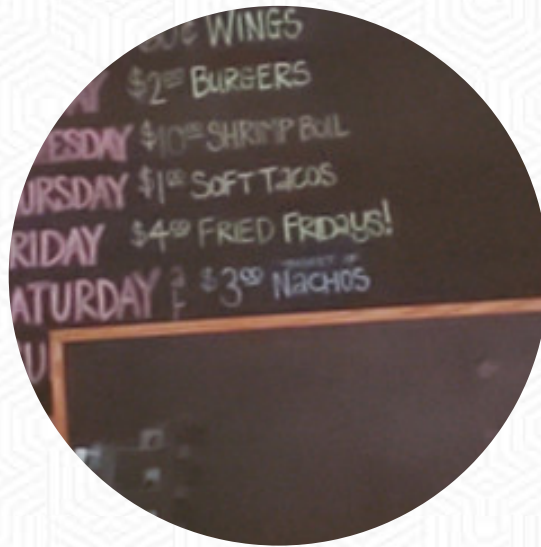 WINGS
$2⁰⁰ BURGERS
ESDAY $10⁰⁰ SHRIMP BOIL
URSDAY $1⁰⁰ SOFT TACOS
RIDAY $4⁰⁰ FRIED FRIDAYS!
ATURDAY $3⁰⁰ NACHOS
U